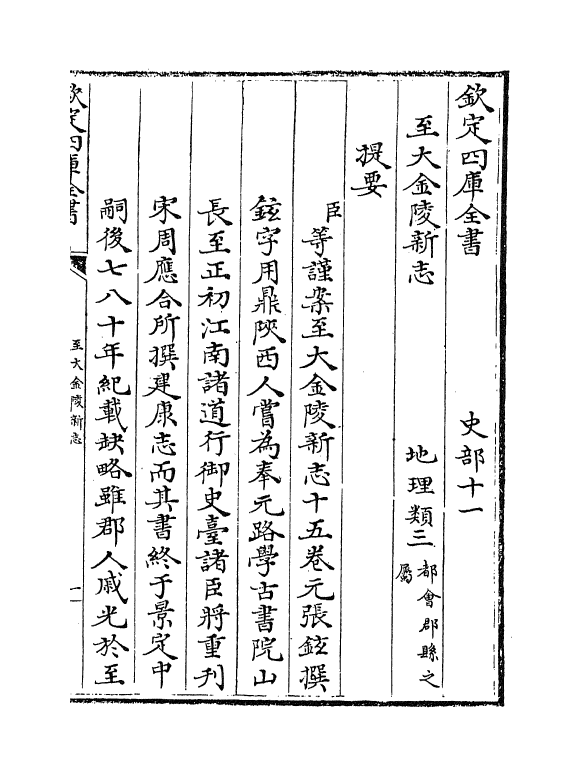 欽定四庫全書　史部十一
至大金陵新志　地理類三都會郡縣之屬
提要
臣等謹案至大金陵新志十五卷元張鉉撰
鉉字用鼎陝西人嘗為奉元路學古書院山
長至正初江南諸道行御史臺諸臣將重刊
宋周應合所撰建康志而其書終于景定中
嗣後七八十年紀載缺略雖郡人戚光於至
欽定四庫全書
至大金陵新志
一